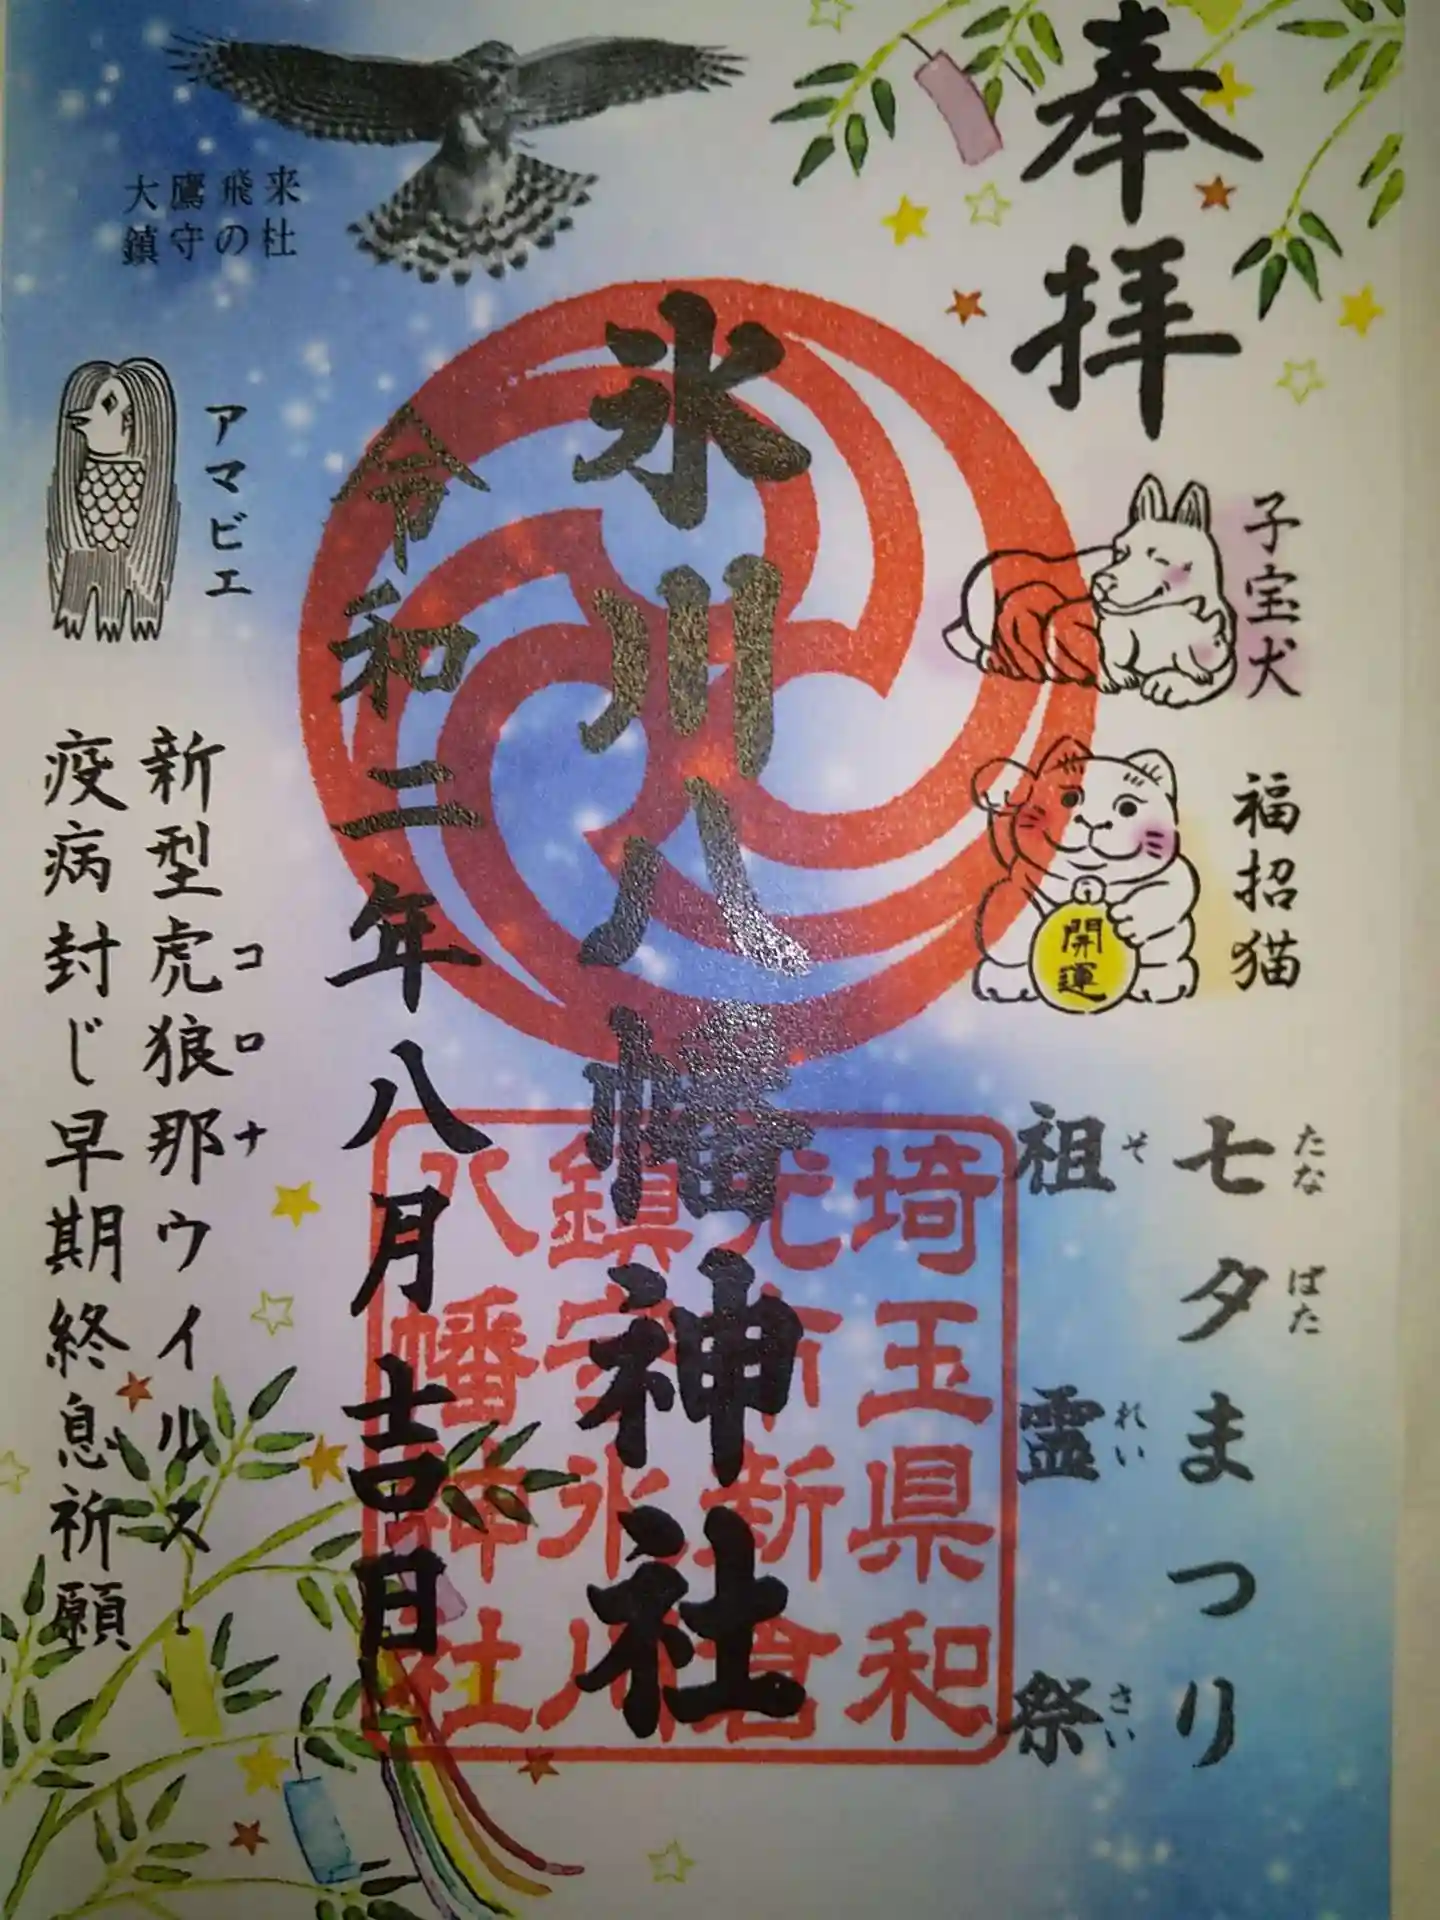 奉拝
子宝犬
福招猫
開運
七夕まつり
たなばた
祖霊祭
それいさい
氷川八幡神社
埼玉県和
光市新倉
鎮守氷川
八幡神社
令和二年八月吉日
大鷹飛来
鎮守の杜
アマビエ
新型虎狼那ウイルス
コロナ
疫病封じ早期終息祈願